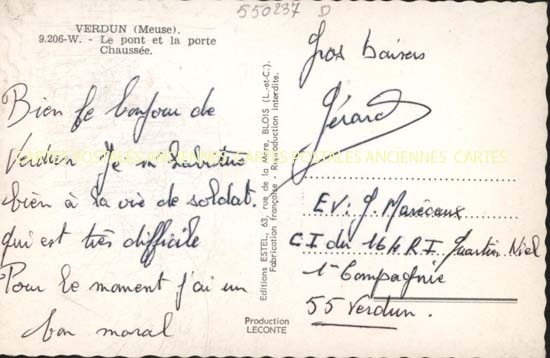 550237 D
VERDUN (Meuse).
9.206-W. - Le pont et la porte
Chaussée.
Bien le bonjour de
Verdun Je m'habitue
bien à la vie de soldat.
qui est très difficile
Pour le moment j'ai un
bon moral
Editions ESTEL, 63, rue de la Mare, BLOIS (L.-et-C.)
Fabrication française - Reproduction interdite.
Production
LECONTE
Gros baisers
Gérard
EVi G. Marécaux
C.I du 164 R.I. Quartier Niel
1e Compagnie
55 Verdun.
CARTES POSTALES ANCIENNES CARTES POSTALES ANCIENNES CARTES